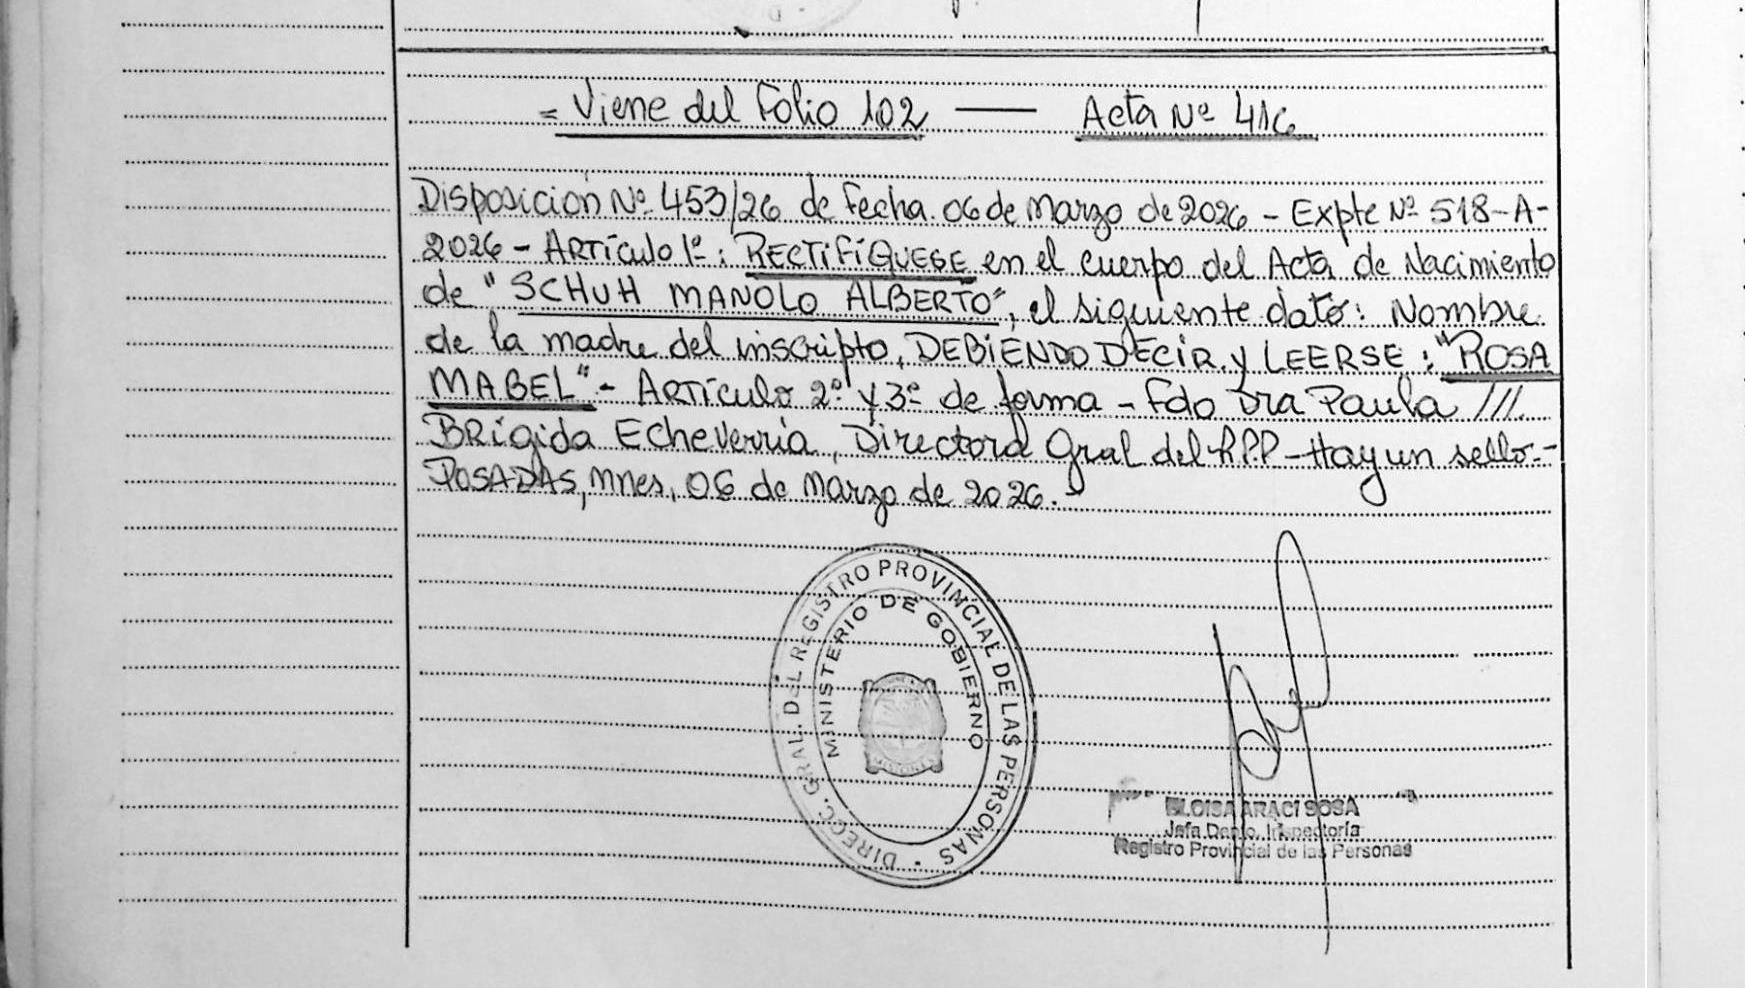 = Viene del Folio 102 —— Acta Nº 416
Disposición Nº 453/26 de fecha 06 de Marzo de 2026 - Expte Nº 518-A-
2026 - Artículo 1º: RECTIFÍQUESE en el cuerpo del Acta de Nacimiento
de "SCHUH MANOLO ALBERTO", el siguiente dato: Nombre
de la madre del inscripto, DEBIENDO DECIR y LEERSE: "ROSA
MABEL" - Artículo 2º y 3º de forma - Fdo Dra Paula ///
Brígida Echeverría, Directora Gral del RPP - Hay un sello.-
POSADAS, Mnes, 06 de Marzo de 2026.-
DIRECC. GRAL. DEL REGISTRO PROVINCIAL DE LAS PERSONAS
MINISTERIO DE GOBIERNO
MISIONES
ELOISA ARACI SOSA
Jefa Depto. Inspectoría
Registro Provincial de las Personas